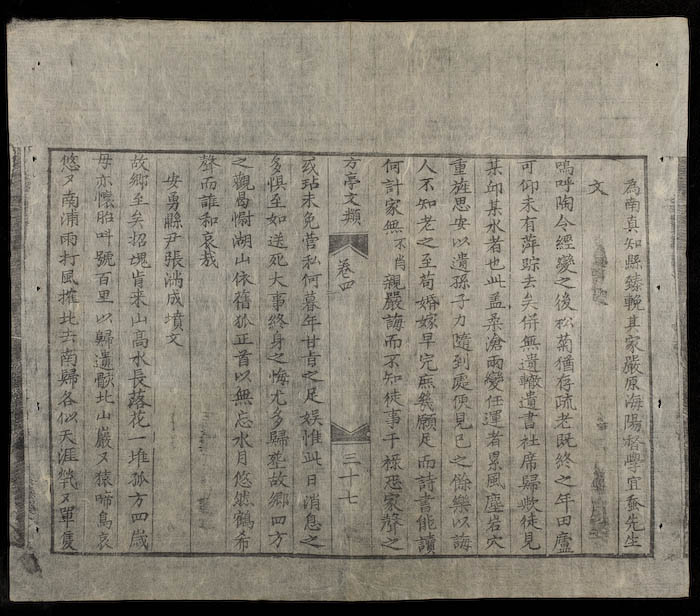 為南真知縣臻輓其家嚴原海陽督學宜蚕先生
文
嗚呼陶令經變之後松菊猶存疏老既終之年田廬
可仰未有萍踪去矣併無遺轍遺書社席歸歟徒見
某邱某水者也此孟桑滄兩變任運者累風塵岩穴
重旌思安以遺孫子力隨到處便見已之餘樂以誨
人不知老之至荀婚嫁早完庶幾願足而詩書能讀
何計家無不肖親嚴誨而不知徒事于祿恐家聲之
方亭文類
卷四
三十七
或玷未免營私何暮年甘旨之足娱惟此日消息之
多惧至如送死大事終身之悔尤多歸塟故鄉四方
之觀曷慰湖山依舊狐正首以無忘水月悠然鶴希
聲而誰和哀哉
安勇縣尹張湍成墳文
故鄉至矣招塊肯來山高水長落花一堆狐方四歲
母亦懷胎呌號百里以歸遺骸北山巖又猿啼鳥哀
悠又南浦雨打風摧北去南歸各似天涯煢又單隻